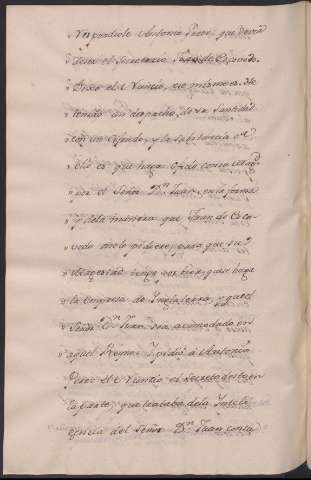 " Respondiole Antonio Perez, que devia
" de ser el Secretario Juan de Escovedo.
" Dixo el Nuncio, ese mismo: he
" tenido un despacho de su Santidad
" con un Cifrado, y la substancia de
" ello es que haga oficio como
" por el Señor D.n Juan, en la forma
" y de la manera que Juan de Esco-
" vedo me lo pidiere, para que su
" Magestad tenga por bien, que haga
" la empresa de Inglaterra, y que el
" Señor D.n Juan sea acomodado en
" aquel Reyno. Y pidió a Antonio
" Perez el Nuncio el secreto desto en
" la parte que trataba de la Inteli-
" gencia del Señor D.n Juan con la